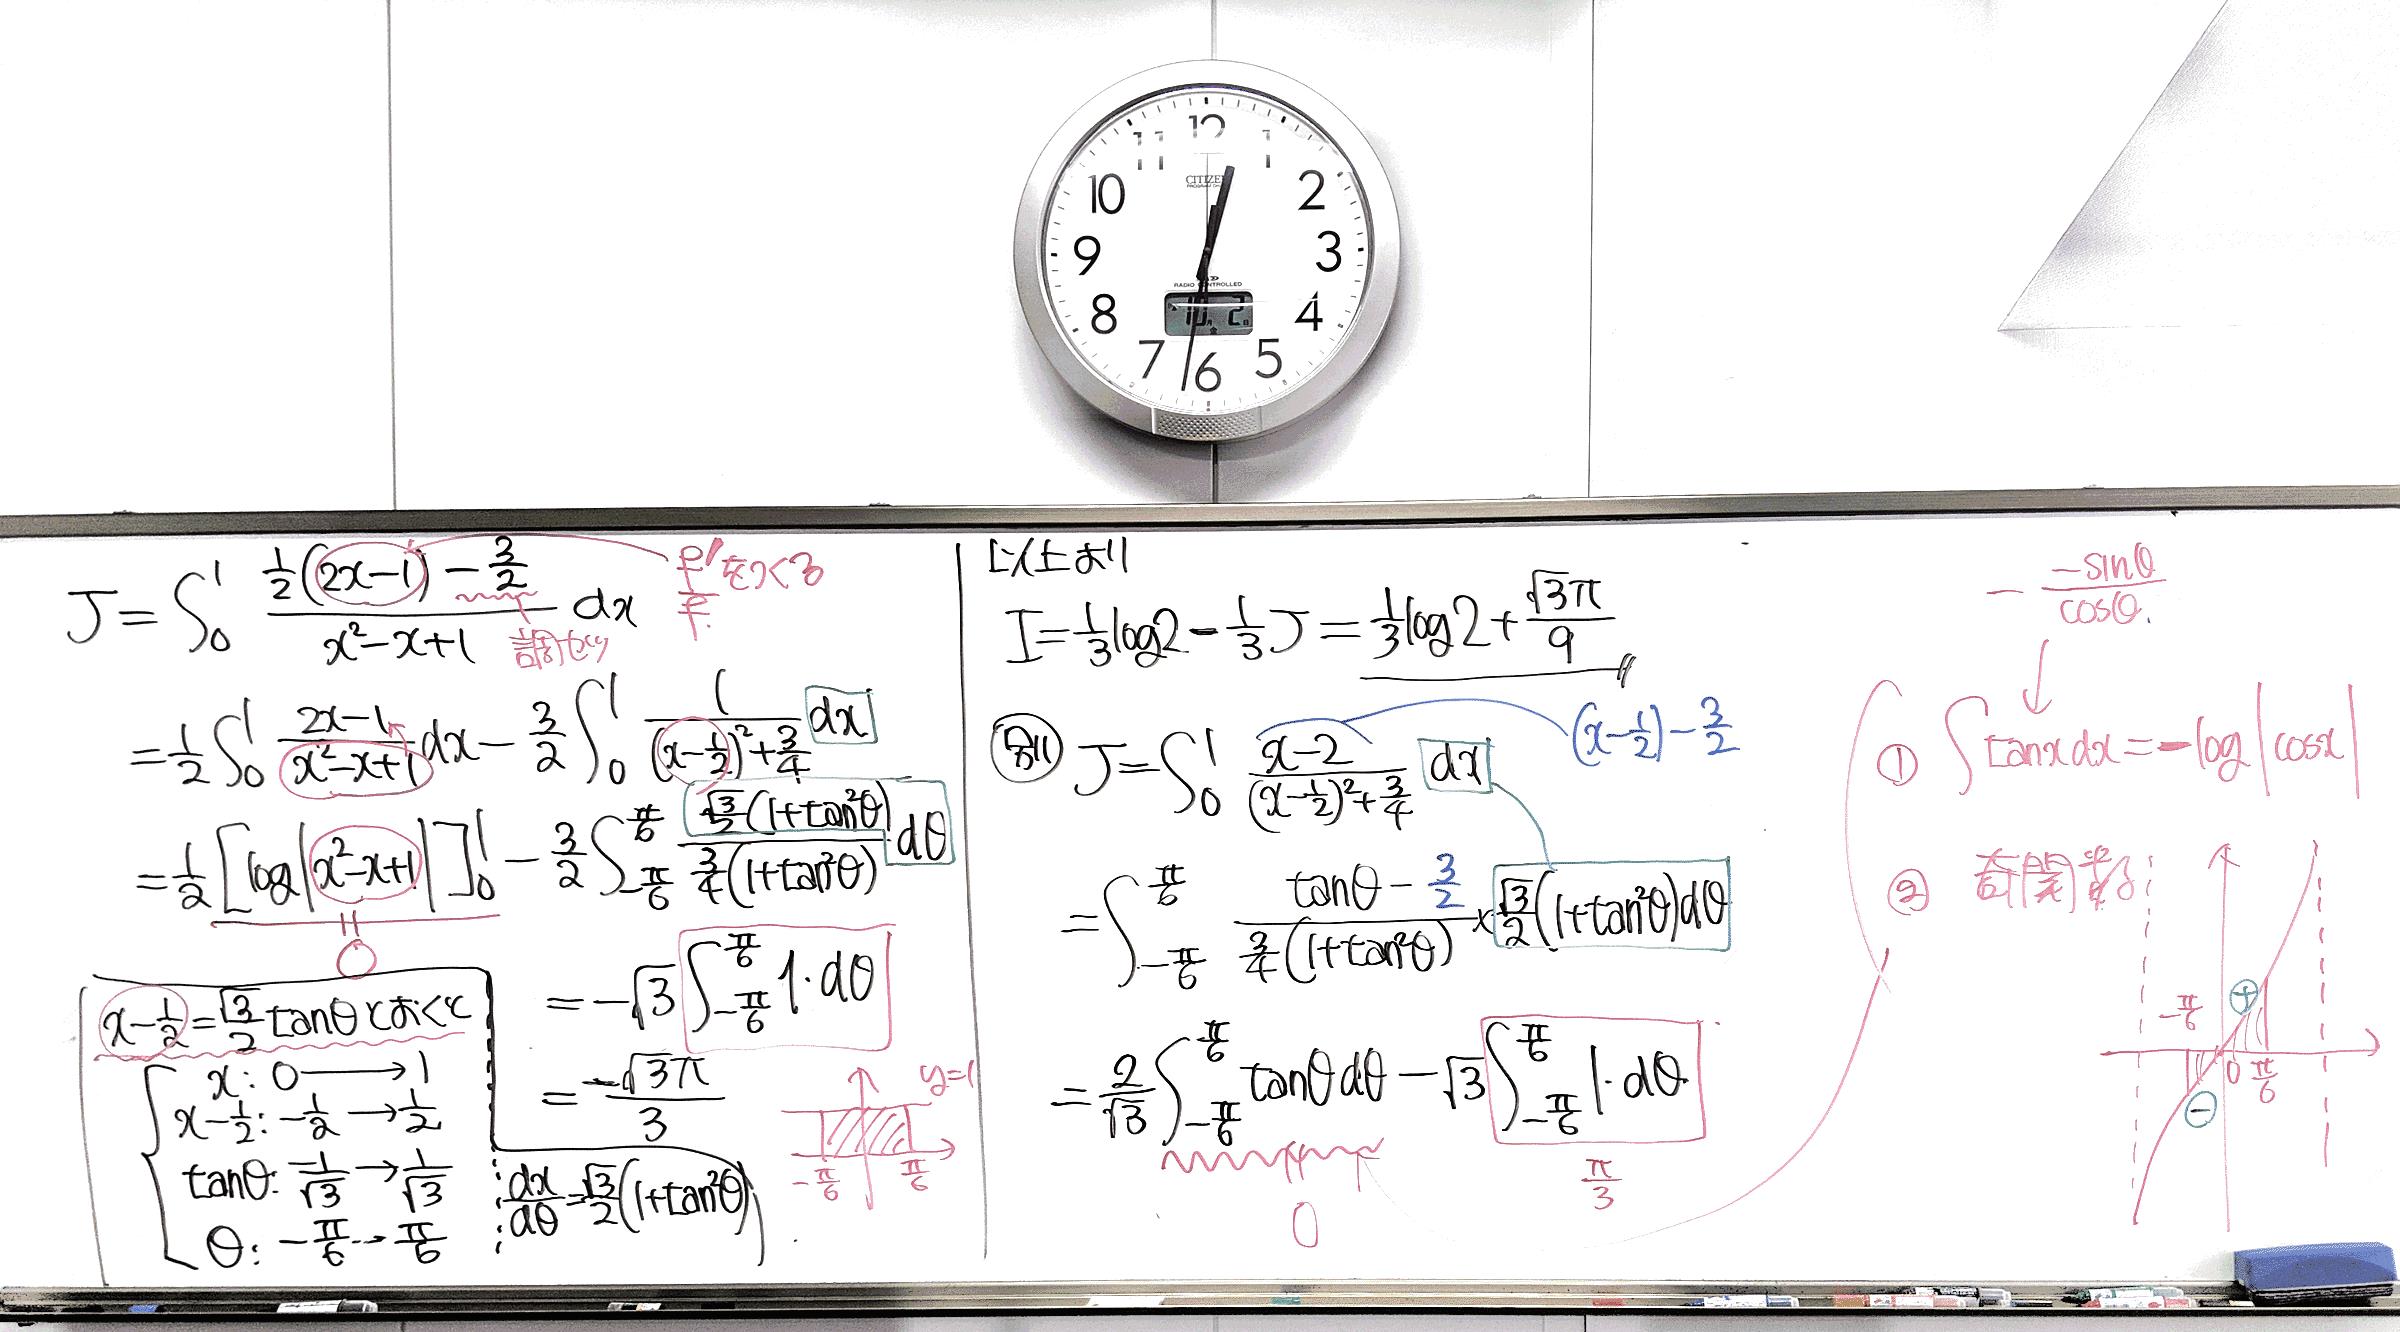 12
11 1
10 2
9 3
8 4
7 6 5
CITIZEN
RADIO CONTROLLED
10月 2日
J = ∫₀¹ (½(2x-1) - 3/2)/(x²-x+1) dx
f'/f をつくる
= ½∫₀¹ (2x-1)/(x²-x+1) dx - 3/2 ∫₀¹ 1/((x-½)²+¾) dx
= ½[log|x²-x+1|]₀¹ - 3/2 ∫_{-π/6}^{π/6} (√3/2 (1+tan²θ))/(¾(1+tan²θ)) dθ
0
x-½ = √3/2 tanθ とおくと
x: 0 → 1
x-½: -½ → ½
tanθ: -1/√3 → 1/√3
θ: -π/6 → π/6
dx/dθ = √3/2 (1+tan²θ)
= -√3 ∫_{-π/6}^{π/6} 1·dθ
= -√3π/3
y=1
-π/6 π/6
以上より
I = ⅓log2 - ⅓J = ⅓log2 + √3π/9
別 J = ∫₀¹ (x-2)/((x-½)²+¾) dx
(x-½) - 3/2
= ∫_{-π/6}^{π/6} (tanθ - 3/2)/(¾(1+tan²θ)) × √3/2 (1+tan²θ)dθ
= 2/√3 ∫_{-π/6}^{π/6} tanθ dθ - √3 ∫_{-π/6}^{π/6} 1·dθ
0
π/3
- (-sinθ)/(cosθ).
① ∫ tanx dx = -log|cosx|
② 奇関数
⊕
-π/6
0 π/6
⊖